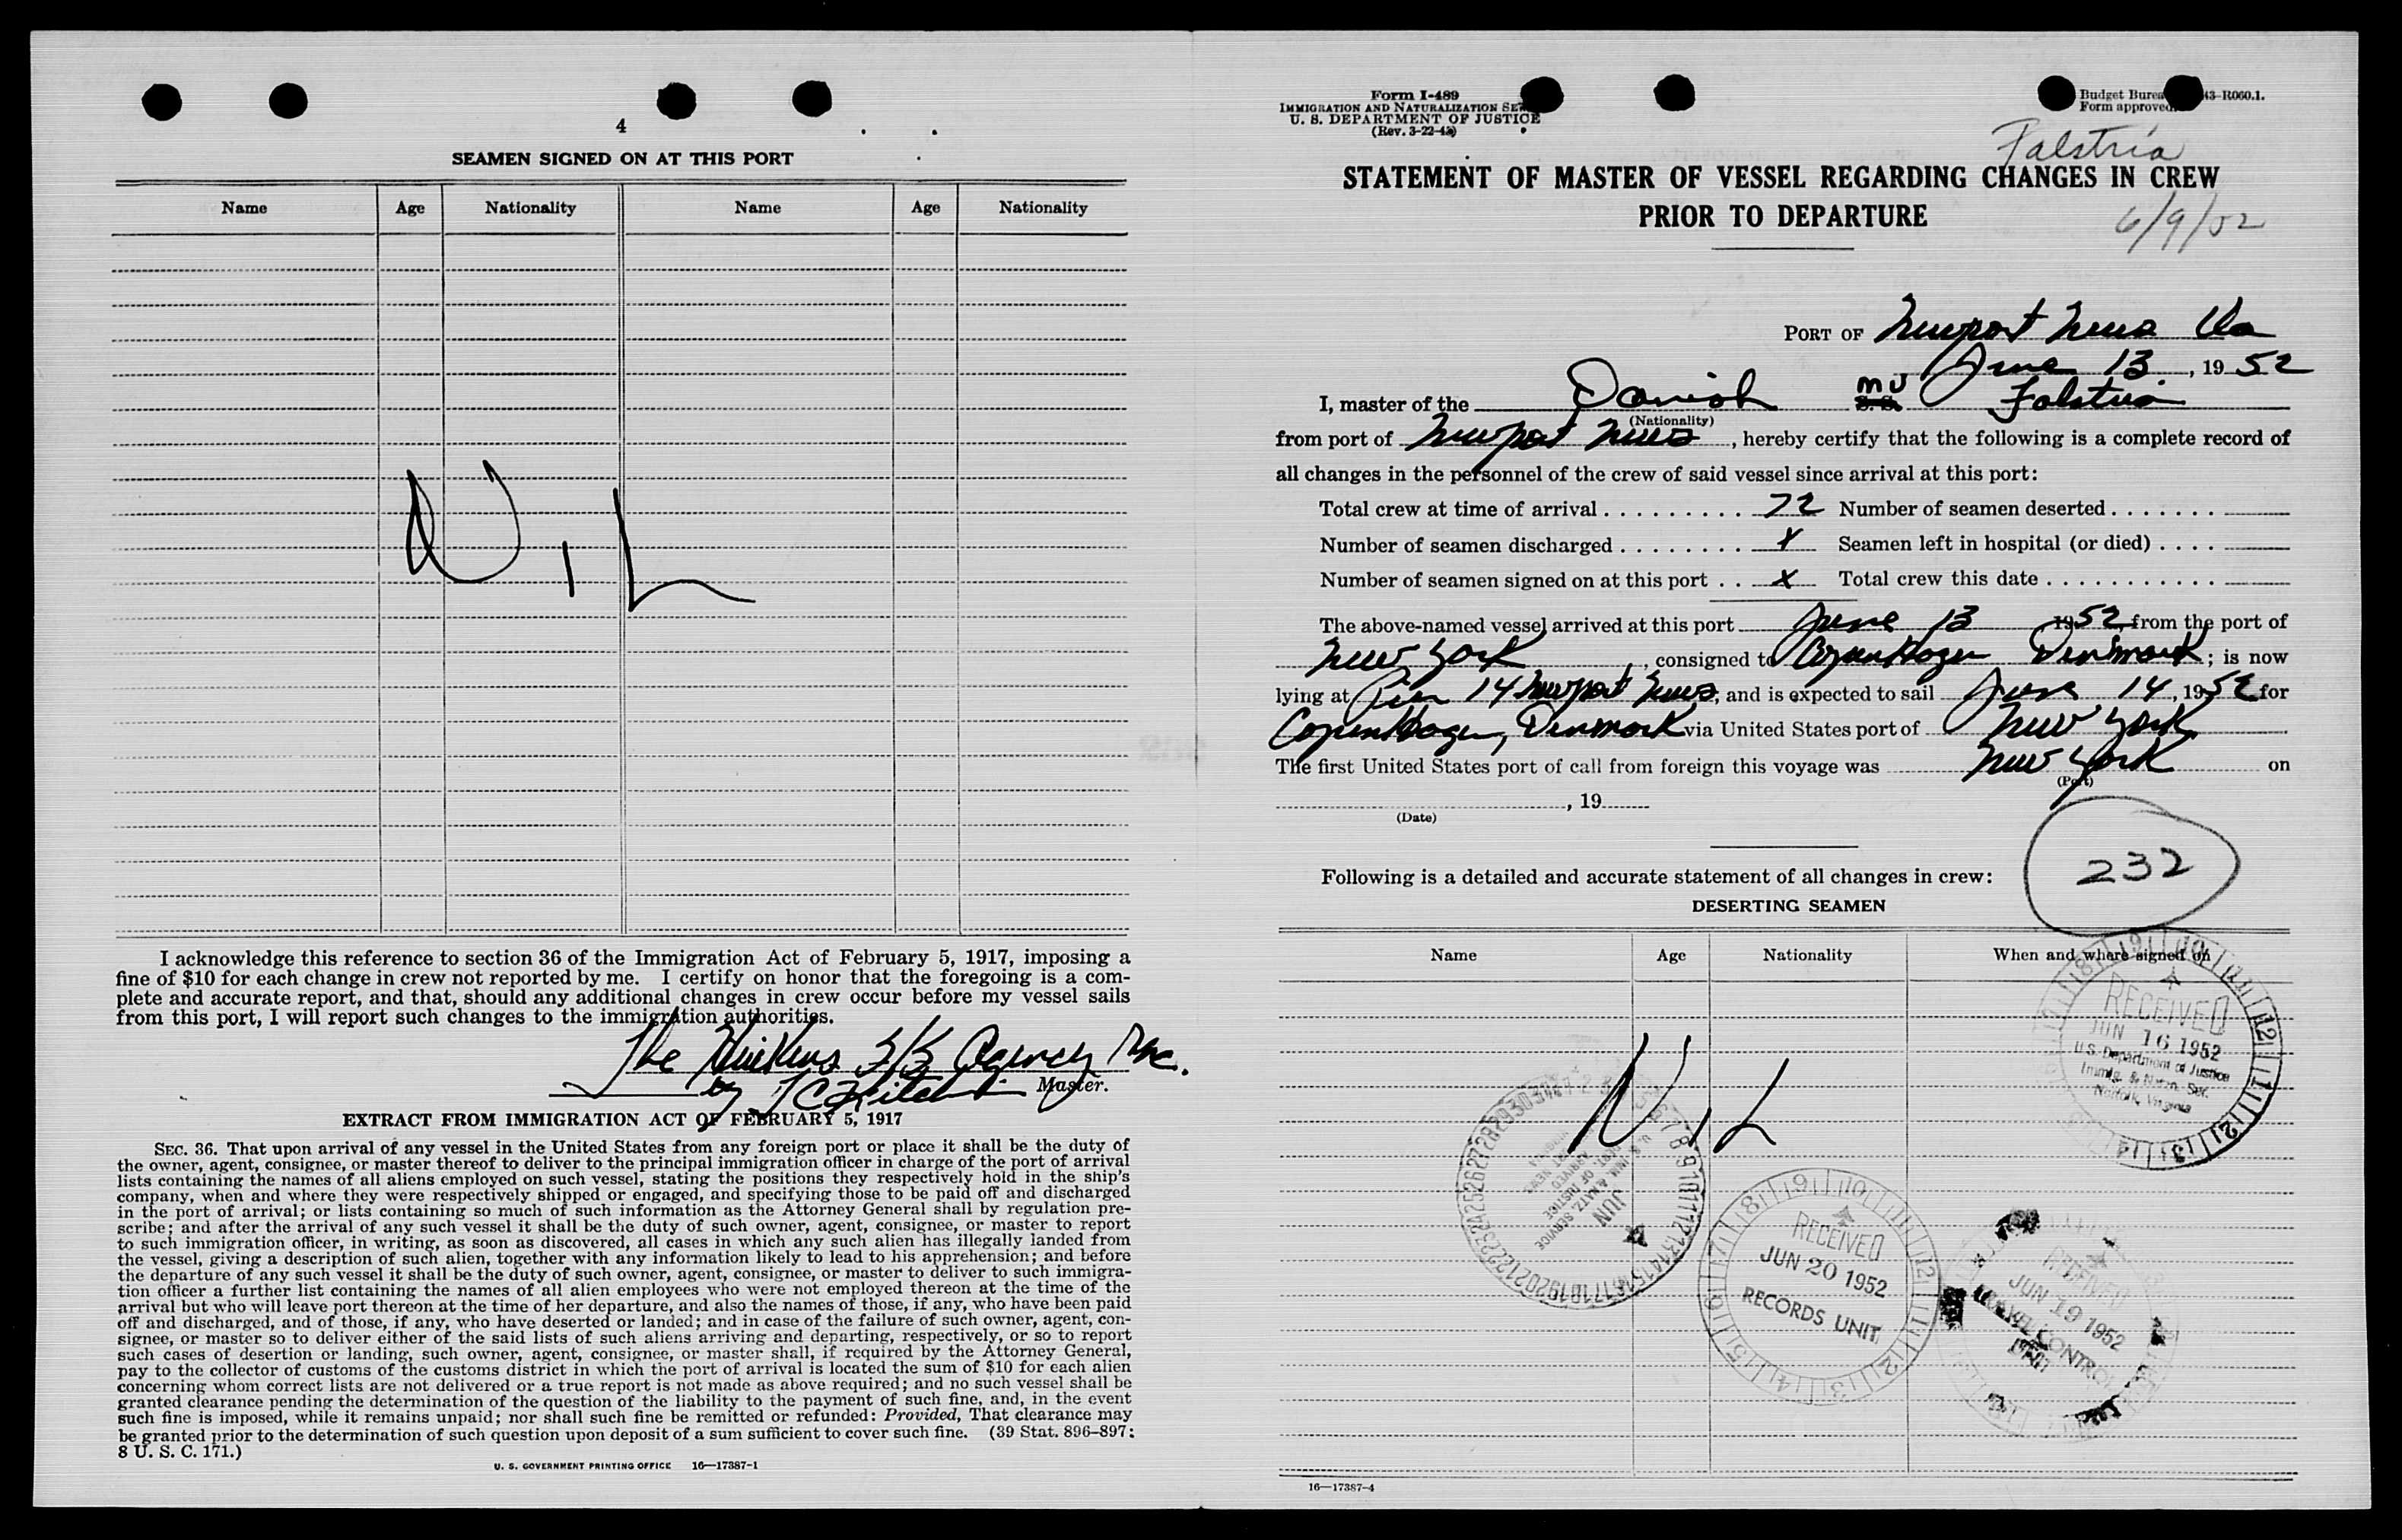 4
SEAMEN SIGNED ON AT THIS PORT
Name Age Nationality Name Age Nationality
Nil
I acknowledge this reference to section 36 of the Immigration Act of February 5, 1917, imposing a
fine of $10 for each change in crew not reported by me. I certify on honor that the foregoing is a com-
plete and accurate report, and that, should any additional changes in crew occur before my vessel sails
from this port, I will report such changes to the immigration authorities.
The Hinkins S/S Agency Inc.
by Master.
EXTRACT FROM IMMIGRATION ACT OF FEBRUARY 5, 1917
SEC. 36. That upon arrival of any vessel in the United States from any foreign port or place it shall be the duty of
the owner, agent, consignee, or master thereof to deliver to the principal immigration officer in charge of the port of arrival
lists containing the names of all aliens employed on such vessel, stating the positions they respectively hold in the ship's
company, when and where they were respectively shipped or engaged, and specifying those to be paid off and discharged
in the port of arrival; or lists containing so much of such information as the Attorney General shall by regulation pre-
scribe; and after the arrival of any such vessel it shall be the duty of such owner, agent, consignee, or master to report
to such immigration officer, in writing, as soon as discovered, all cases in which any such alien has illegally landed from
the vessel, giving a description of such alien, together with any information likely to lead to his apprehension; and before
the departure of any such vessel it shall be the duty of such owner, agent, consignee, or master to deliver to such immigra-
tion officer a further list containing the names of all alien employees who were not employed thereon at the time of the
arrival but who will leave port thereon at the time of her departure, and also the names of those, if any, who have been paid
off and discharged, and of those, if any, who have deserted or landed; and in case of the failure of such owner, agent, con-
signee, or master so to deliver either of the said lists of such aliens arriving and departing, respectively, or so to report
such cases of desertion or landing, such owner, agent, consignee, or master shall, if required by the Attorney General,
pay to the collector of customs of the customs district in which the port of arrival is located the sum of $10 for each alien
concerning whom correct lists are not delivered or a true report is not made as above required; and no such vessel shall be
granted clearance pending the determination of the question of the liability to the payment of such fine, and, in the event
such fine is imposed, while it remains unpaid; nor shall such fine be remitted or refunded: Provided, That clearance may
be granted prior to the determination of such question upon deposit of a sum sufficient to cover such fine. (39 Stat. 896–897;
8 U. S. C. 171.)
U. S. GOVERNMENT PRINTING OFFICE 16—17387-1
Form I-489
IMMIGRATION AND NATURALIZATION
U. S. DEPARTMENT OF JUSTICE
(Rev. 3-22-43)
Budget 43-R060.1.
Form approved
Falstria
STATEMENT OF MASTER OF VESSEL REGARDING CHANGES IN CREW
PRIOR TO DEPARTURE
6/9/52
PORT OF Newport News Va
June 13, 1952
I, master of the Danish MV S. S. Falstria
(Nationality)
from port of Newport News, hereby certify that the following is a complete record of
all changes in the personnel of the crew of said vessel since arrival at this port:
Total crew at time of arrival . . . . . . . . . . 72 Number of seamen deserted . . . . . . .
Number of seamen discharged . . . . . . . . x Seamen left in hospital (or died) . . . .
Number of seamen signed on at this port . . x Total crew this date . . . . . . . . . . .
The above-named vessel arrived at this port June 13 1952, from the port of
New York, consigned to Copenhagen Denmark; is now
lying at Pier 14 Newport News, and is expected to sail June 14, 1952 for
Copenhagen, Denmark via United States port of New York
The first United States port of call from foreign this voyage was New York on
(Port)
, 19
(Date)
232
Following is a detailed and accurate statement of all changes in crew:
DESERTING SEAMEN
Name Age Nationality When and where signed on
Nil
RECEIVED
JUN 16 1952
U.S. Department of Justice
Immig. & Natzn. Ser.
Norfolk, Virginia
U. S. IMM. & NATZ. SERVICE
DEPT. OF JUSTICE
ARRIVED
JUN
RECEIVED
JUN 20 1952
RECORDS UNIT
RECEIVED
JUN 19 1952
CONTROL
16—17387-4